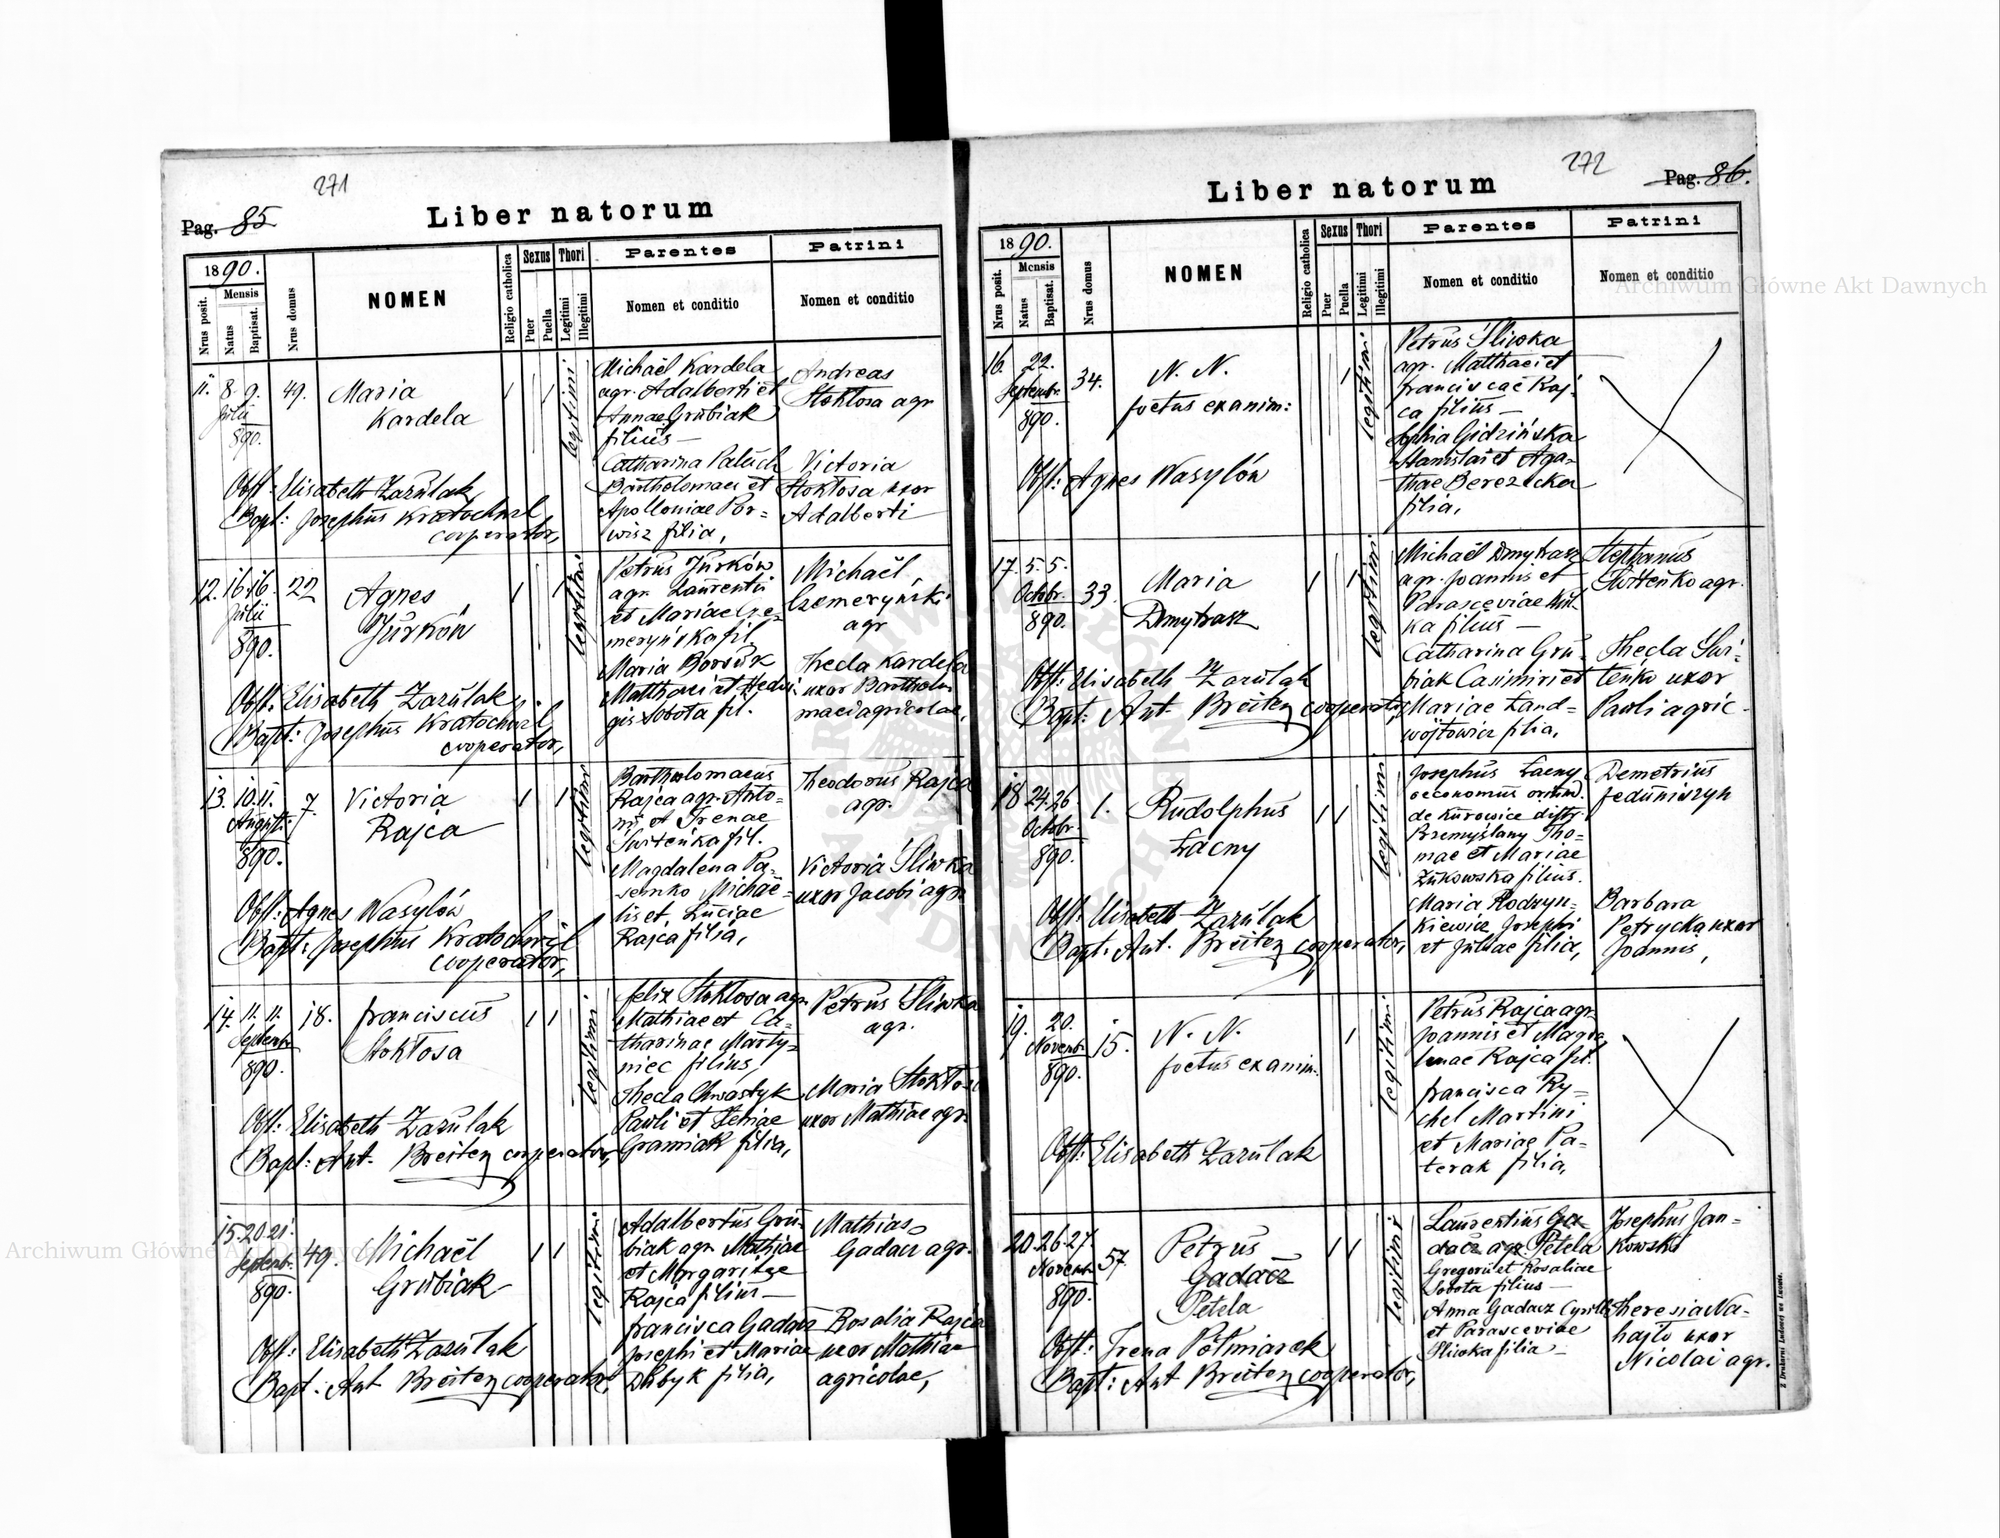 271
Pag. 85
Liber natorum
1890.
Nrus posit.
Mensis
Natus
Baptisat.
Nrus domus
NOMEN
Religio catholica
Sexus
Puer
Puella
Thori
Legitimi
Illegitimi
Parentes
Nomen et conditio
Patrini
Nomen et conditio
11. 8. 9.
Julii
890.
49.
Maria
Kardela
legitimi
Michaël Kardela
agr. Adalberti et
Annae Grubiak
filius —
Catharina Paluch
Bartholomaei et
Apolloniae Por-
wisz filia,
Andreas
Stokłosa agr
Victoria
Stokłosa uxor
Adalberti
Obst: Elisabeth Zazulak
Bapt: Josephus Kratochwil
cooperator,
12. 16. 16.
Julii
890.
22
Agnes
Jurków
legitimi
Petrus Jurków
agr. Laurentii
et Mariae Cze-
meryńska fil.
Maria Borsuk
Matthaei et Hedwi-
gis Sobota fil.
Michaël
Czemeryński
agr
Thecla Kardela
uxor Bartholo-
maei agricolae,
Obst: Elisabeth Zazulak
Bapt: Josephus Kratochwil
cooperator,
13. 10. 11.
Augusti
890.
7.
Victoria
Rajca
legitimi
Bartholomaeus
Rajca agr. Anto-
nii et Irenae
Switenka fil.
Magdalena Pa-
senko Michaë-
lis et Luciae
Rajca filia,
Theodorus Rajca
agr.
Victoria Śliwka
uxor Jacobi agr
Obst: Agnes Wasylów
Bapt: Josephus Kratochwil
cooperator,
14. 11. 11.
Septembr
890.
18.
Franciscus
Stokłosa
legitimi
Felix Stokłosa agr.
Mathiae et Ca-
tharinae Marty-
niec filius,
Thecla Chwastyk
Pauli et Xeniae
Gramiak filia,
Petrus Śliwka
agr.
Maria Stokłosa
uxor Mathiae agr.
Obst: Elisabeth Zazulak
Bapt: Ant. Breiten cooperator,
15. 20. 21.
Septembr.
890.
49.
Michaël
Grubiak
legitimi
Adalbertus Gru-
biak agr. Mathiae
et Margaritae
Rajca filius —
Francisca Gadacz
Josephi et Mariae
Dubyk filia,
Mathias
Gadacz agr.
Rosalia Rajca
uxor Mathiae
agricolae,
Obst: Elisabeth Zazulak
Bapt: Ant Breiten cooperator,
272
Pag. 86.
Liber natorum
1890.
Nrus posit.
Mensis
Natus
Baptisat.
Nrus domus
NOMEN
Religio catholica
Sexus
Puer
Puella
Thori
Legitimi
Illegitimi
Parentes
Nomen et conditio
Patrini
Nomen et conditio
16. 22.
Septembr.
890.
34.
N. N.
foetus exanim:
legitimi
Petrus Śliwka
agr. Matthaei et
Franciscae Raj-
ca filius —
Sophia Gidzińska
Stanislai et Aga-
thae Berezicka
filia,
Obst: Agnes Wasylów
17. 5. 5.
Octobr.
890.
33.
Maria
Dmytrasz
legitimi
Michaël Dmytrasz
agr. Joannis et
Parasceviae
filius —
Catharina Gru-
biak Casimiri et
Mariae Land-
wójtowicz filia,
Stephanus
Świtenko agr.
Thecla Świ-
tenko uxor
Pauli agric.
Obst: Elisabeth Zazulak
Bapt: Ant. Breiten cooperator,
18. 24. 26.
Octobr
890.
1.
Rudolphus
Łacny
legitimi
Josephus Łacny
oeconomus oriund.
de Kurowice distr.
Przemyślany Tho-
mae et Mariae
Żukowska filius.
Maria Rodzyn-
kiewicz Josephi
et Juliae filia,
Demetrius
Feduniszyn
Barbara
Petrycka uxor
Joannis,
Obst: Elisabeth Zazulak
Bapt: Ant. Breiten cooperator,
19. 20.
Novembr
890.
15.
N. N.
foetus exanim.
legitimi
Petrus Rajca agr.
Joannis et Magda-
lenae Rajca fil.
Francisca Ry-
chel Martini
et Mariae Pa-
terak filia,
Obst: Elisabeth Zazulak
20. 26. 27.
Novembr
890.
57.
Petrus
Gadacz
Petela
legitimi
Laurentius Ga-
dacz agr Petela
Gregorii et Rosaliae
Sobota filius —
Anna Gadacz Cyrilli
et Parasceviae
Śliwka filia —
Josephus Jan-
kowski
Theresia Na-
hajło uxor
Nicolai agr.
Obst: Irena Półmiarek
Bapt: Ant Breiten cooperator,
Z Drukarni Ludowej we Lwowie.
Archiwum Główne Akt Dawnych
Archiwum Główne Akt Dawnych